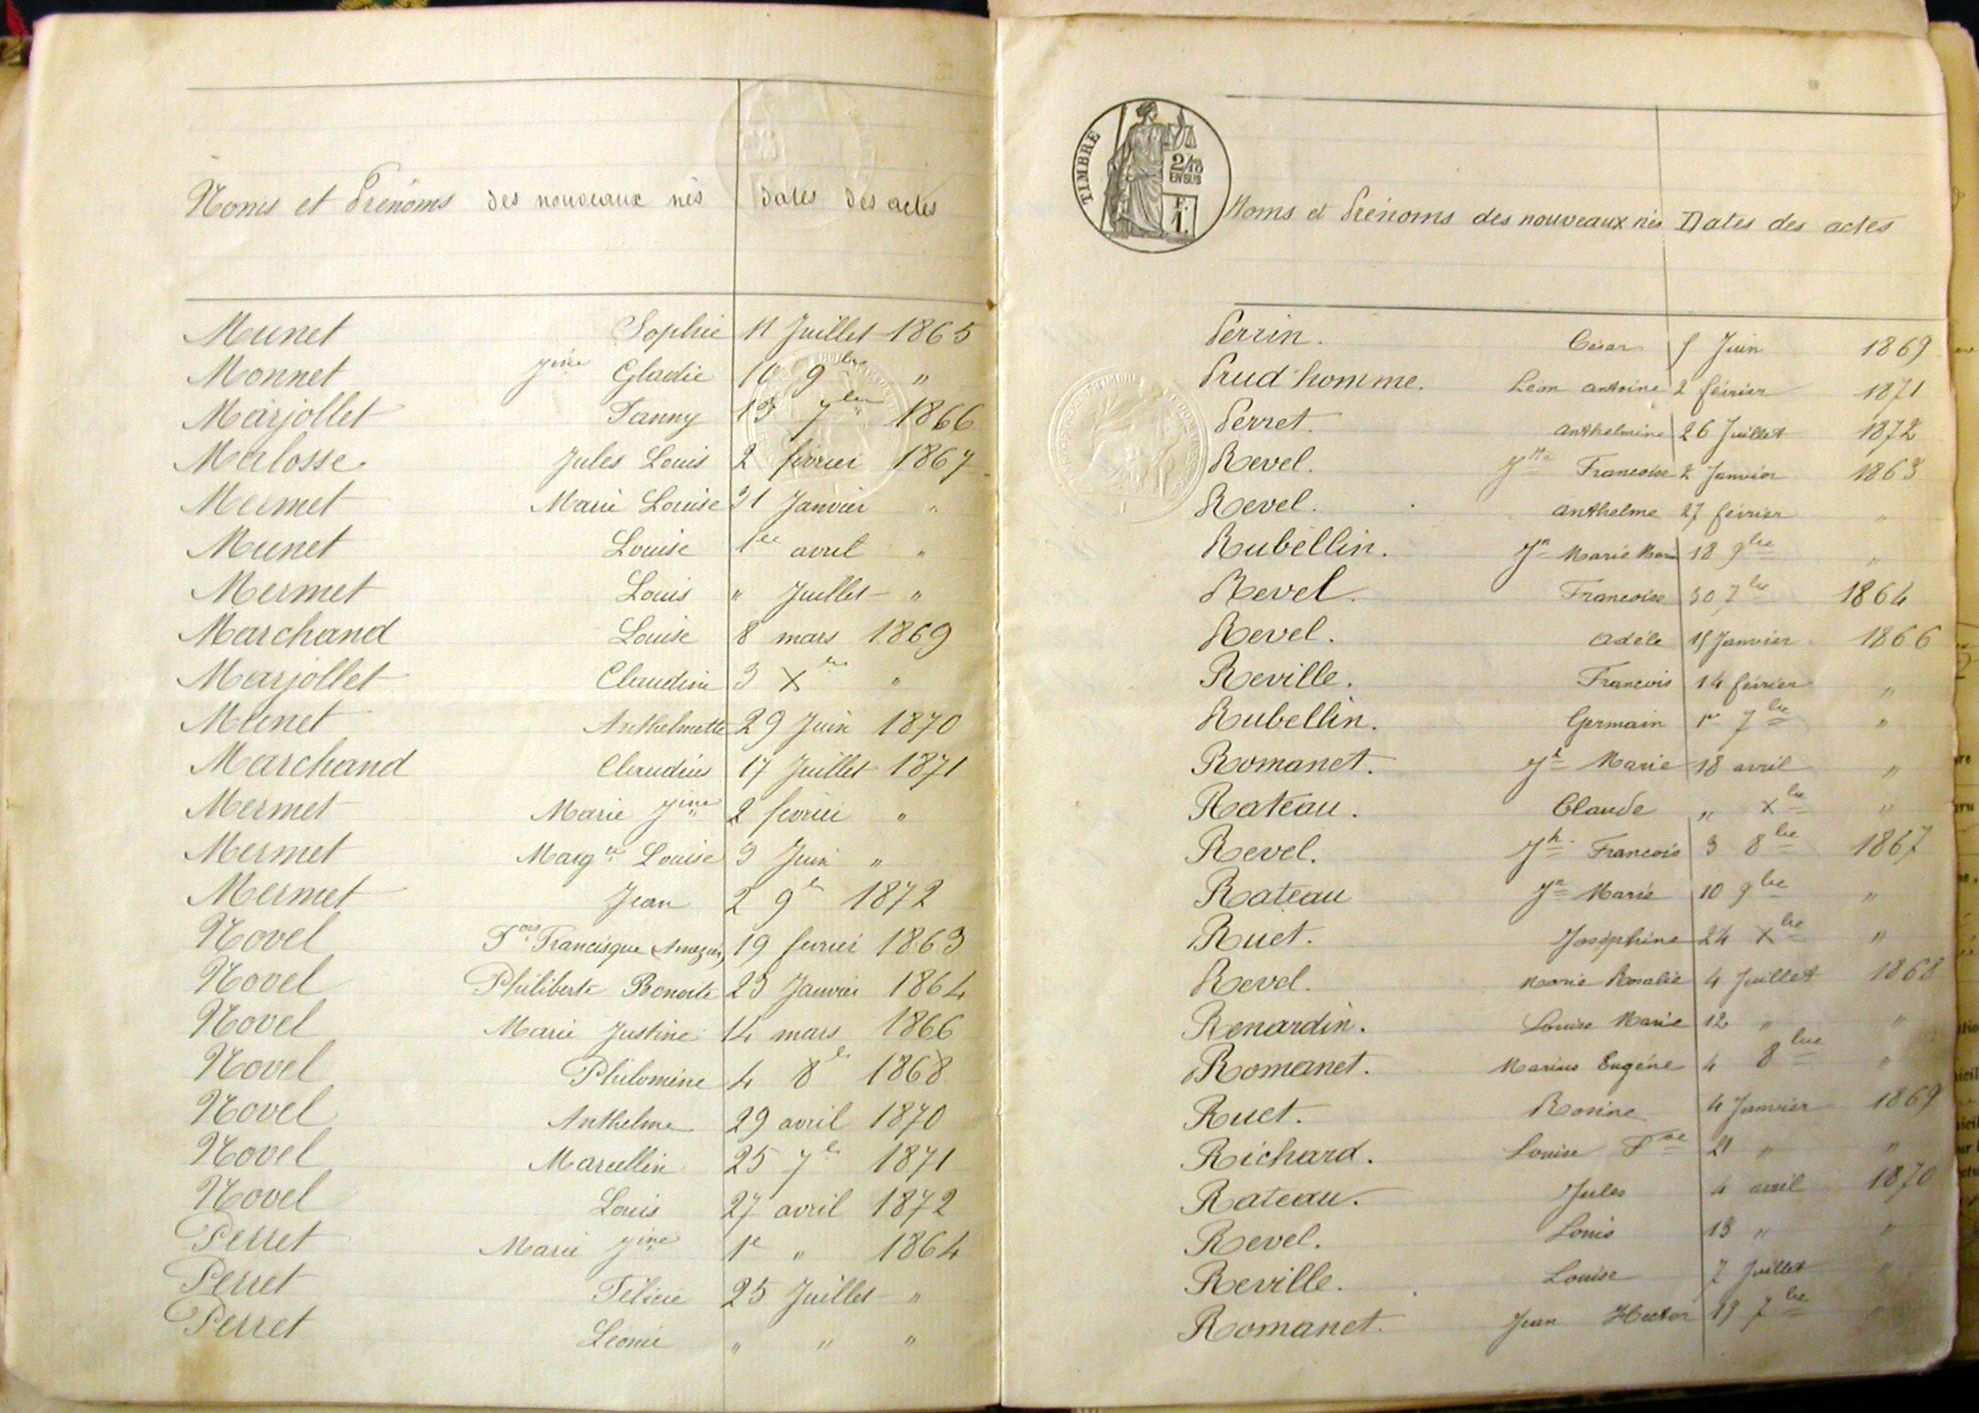 Noms et Prénoms des nouveaux nés Dates des actes
Munet Sophie 11 Juillet 1865
Monnet Jine Gladie 10 9bre "
Marjollet Fanny 13 7bre 1866
Malosse Jules Louis 2 février 1867
Mermet Marie Louise 31 Janvier "
Munet Louise 1er avril "
Mermet Louis " Juillet "
Marchand Louise 8 mars 1869
Marjollet Claudine 3 Xbre "
Munet Anthelmette 29 Juin 1870
Marchand Claudius 17 Juillet 1871
Mermet Marie Jine 2 fevrier "
Mermet Margte Louise 3 Juin "
Mermet Jean 2 9b 1872
Novel Fois Francisque 19 fevrier 1863
Novel Philiberte Benoite 23 Janvier 1864
Novel Marie Justine 14 mars 1866
Novel Philomine 4 8b 1868
Novel Anthelme 29 avril 1870
Novel Marcellin 25 7b 1871
Novel Louis 27 avril 1872
Perret Marie Jine 1e " 1864
Perret Félicie 25 Juillet "
Perret Léonie " " "
TIMBRE
2/10
EN SUS
F.
1.
Noms et Prénoms des nouveaux nés Dates des actes
Perrin. César Juin 1869
Prud'homme. Léon antoine 2 février 1871
Perret. anthelmine 26 Juillet 1872
Revel. Françoise 2 Janvier 1863
Revel. anthelme 27 février "
Rubellin. Jn Marie 18 9bre "
Revel. Françoise 30 7bre 1864
Revel. adèle 15 Janvier 1866
Reville. François 14 février "
Rubellin. Germain 1er 7bre "
Romanet. Jh Marie 18 avril "
Rateau. Claude " Xbre "
Revel. Jh François 3 8bre 1867
Rateau Jn Marie 10 9bre "
Ruet. Joséphine 24 Xbre "
Revel. Marie Rosalie 4 Juillet 1868
Renardin. Louise Marie 12 " "
Romanet. Marius Eugène 4 8bre "
Ruet. Rosine 4 Janvier 1869
Richard. Louise Fse 21 " "
Rateau. Jules 4 avril 1870
Revel. Louis 13 " "
Reville. Louise 7 Juillet "
Romanet. Jean Hector 19 7bre "